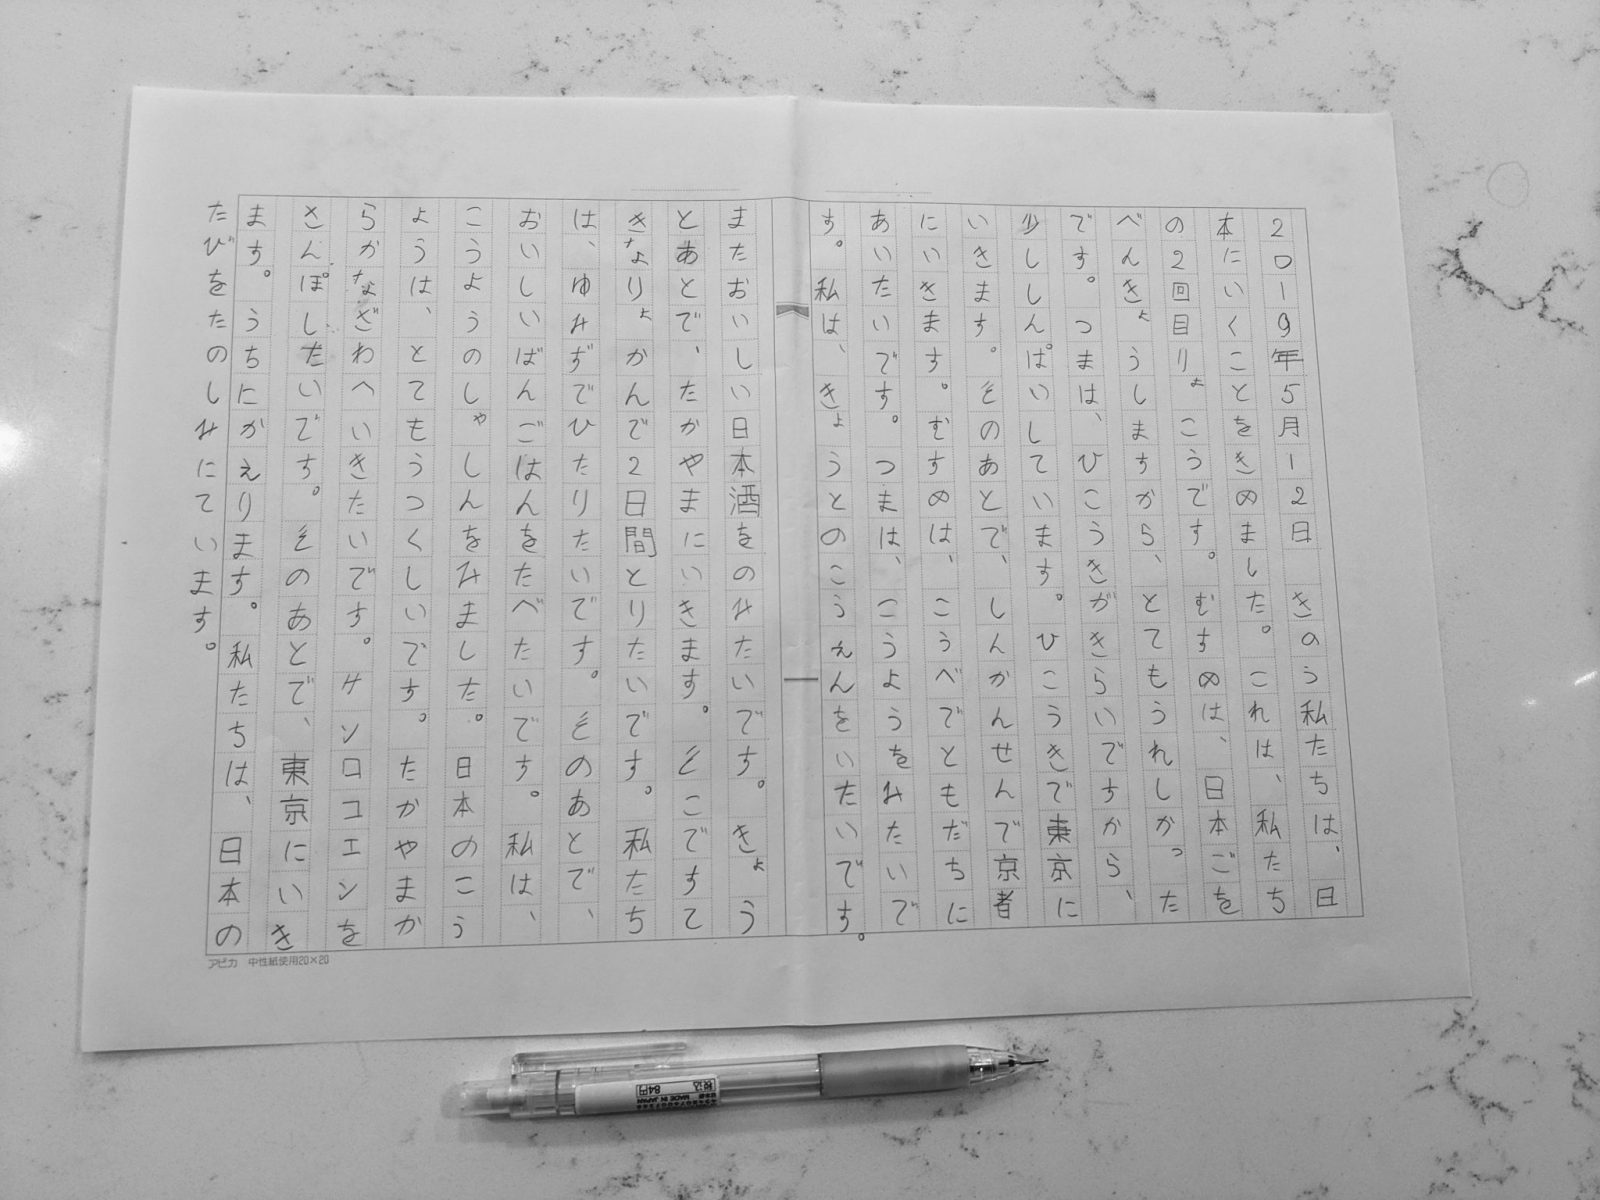 2019年5月12日 きのう私たちは、日
本にいくことをきめました。これは、私たち
の2回目りょこうです。むすめは、日本ごを
べんきょうしますから、とてもうれしかった
です。つまは、ひこうきがきらいですから、
少ししんぱいしています。ひこうきで東京に
いきます。そのあとで、しんかんせんで京者
にいきます。むすめは、こうべでともだちに
あいたいです。つまは、こうようをみたいで
す。私は、きょうとのこうえんをいたいです。
またおいしい日本酒をのみたいです。きょう
とあとで、たかやまにいきます。そこですて
きなりょかんで2日間とりたいです。私たち
は、ゆみずでひたりたいです。そのあとで、
おいしいばんごはんをたべたいです。私は、
こうようのしゃしんをみました。日本のこう
ようは、とてもうつくしいです。たかやまか
らかなざわへいきたいです。ケンロコエンを
さんぽしたいです。そのあとで、東京にいき
ます。うちにかえります。私たちは、日本の
たびをたのしみにています。
アピカ 中性紙使用20×20
税込
84円
MADE IN JAPAN